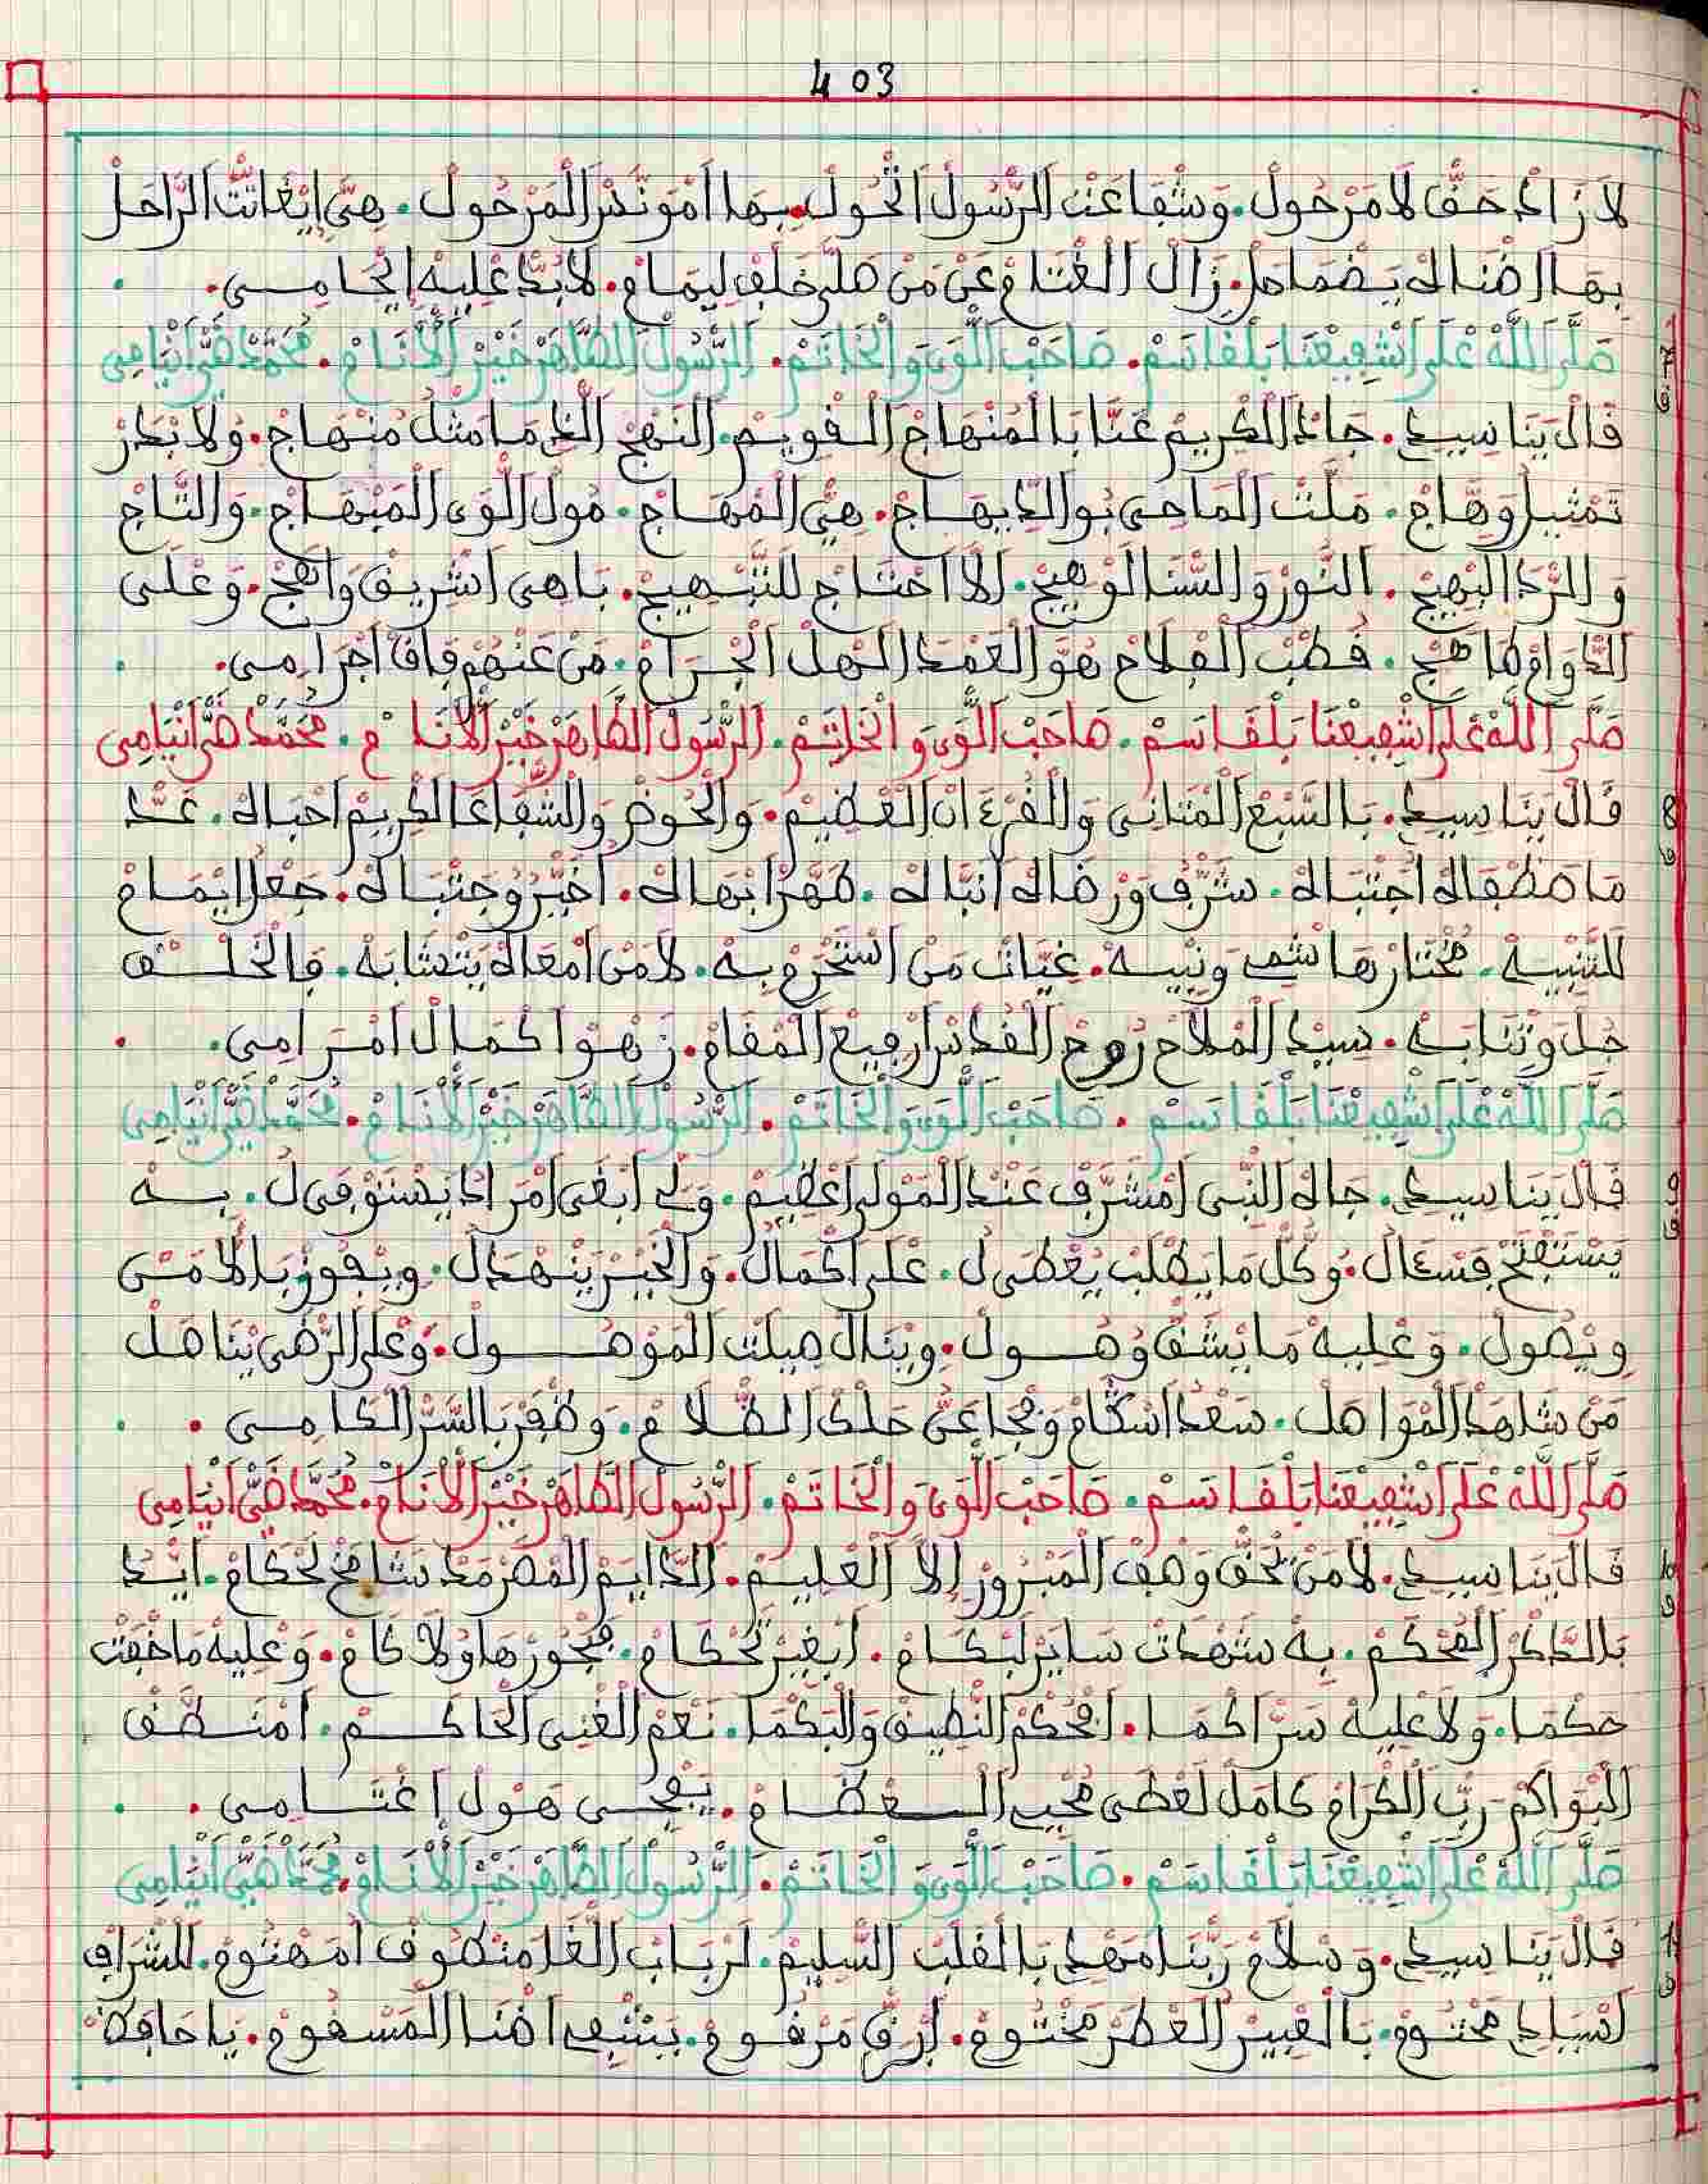 403
لا زاد حق لا مرحول. وشفاعت الرسول الحول. بها امونس المرحول. هي اغاتت الراحل
بها ارضاك يضماحل. زال الغتام عن من صلى خلف ليمام. لابد عليه الحامي.
صلى الله على اشفيعنا بلقاسم. صاحب اللوى والخاتم. الرسول الطاهر خير الانام. محمد ضي انيامي
7
ق
قال ينا سيدي. جاد الكريم عنا بالمنهاج القويم. النهج الذي ما مثل منهاج. ولا بدر
تمثيل وهاج. ملت الماحي بوالديهاج. هي المهاج. مول اللوى المبهاج. والتاج
والردا البهيج. النور والسنا الوهيج. لا احتاج للتبهيج. باهي اشريف واهج. وعلى
الدوام طاهج. قطب الفلاح هو العمدا لهل الجرام. من عنهم فاق اجرامي.
صلى الله على اشفيعنا بلقاسم. صاحب اللوى والخاتم. الرسول الطاهر خير الانام. محمد ضي انيامي
8
ق
قال ينا سيدي. بالسبع المتاني والقرءان العضيم. والحوض والشفاعا الكريم احباه. عند
ما صطفاه اجتباه. شرف ورضاه انباه. طهر ابهاه. اخير وجتباه. جعل ايمام
للتنبيه. مختار هاشمي ونبيه. غيات من استحرم به. لا من امعاه يتشابه. فالخلق
جل وتنابه. سيد الملاح روح القدس ارفيع المقام. زهوا كمال امرامي.
صلى الله على اشفيعنا بلقاسم. صاحب اللوى والخاتم. الرسول الطاهر خير الانام. محمد ضي انيامي
9
ق
قال ينا سيدي. جاه النبي امشرف عند المولى اعظيم. ولي ابغى امراد يستوفى ل. به
يستفتح فسءال. وكل ما يطلب يعطى ل. على اكمال. والخير ينهدال. ويفوز بالامن
ويصول. وعليه ما يشق وصول. وينال صيلت الموصول. وعلى الرضى يناصل
من شاهد المواصل. سعد استقام ونجا عن حلك الظلام. وظفر بالسر الكامي.
صلى الله على اشفيعنا بلقاسم. صاحب اللوى والخاتم. الرسول الطاهر خير الانام. محمد ضي انيامي
10
ق
قال ينا سيدي. لا من يحق وصف المبرور الا العليم. الدايم الصرمد شامخ لحكام. ايد
بالذكر المحكم. به شهدت ساير لبكام. ابغير تحكام. مجور ها ولا كام. وعليه ما خفت
حكما. ولا عليه سر اكما. افحكم النطيق والبكما. نعم الغني الحاكم. امنطق
البواكم. رب الكرام كامل لعطى محيي العظام. يفجي هول اغتامي.
صلى الله على اشفيعنا بلقاسم. صاحب اللوى والخاتم. الرسول الطاهر خير الانام. محمد ضي انيامي
11
ق
قال ينا سيدي. وسلام ربنا مهدي بالقلب السليم. لرباب الغا منطوق امهتوم. للشراف
اسيادي مختوم. بالعبير العطر مختوم. ارق مرقوم. يشفي اضنا المسقوم. يا حافظ